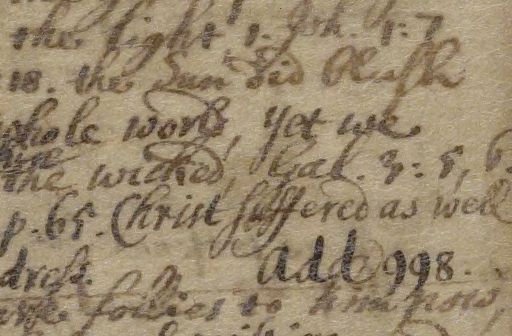 the light, 1. Joh. 1: 7
18. the Sun did blush
whole world, yet we
the wicked, Gal. 3: 5, 6.
p. 65. Christ suffered as well
dress. add 998.
follies to